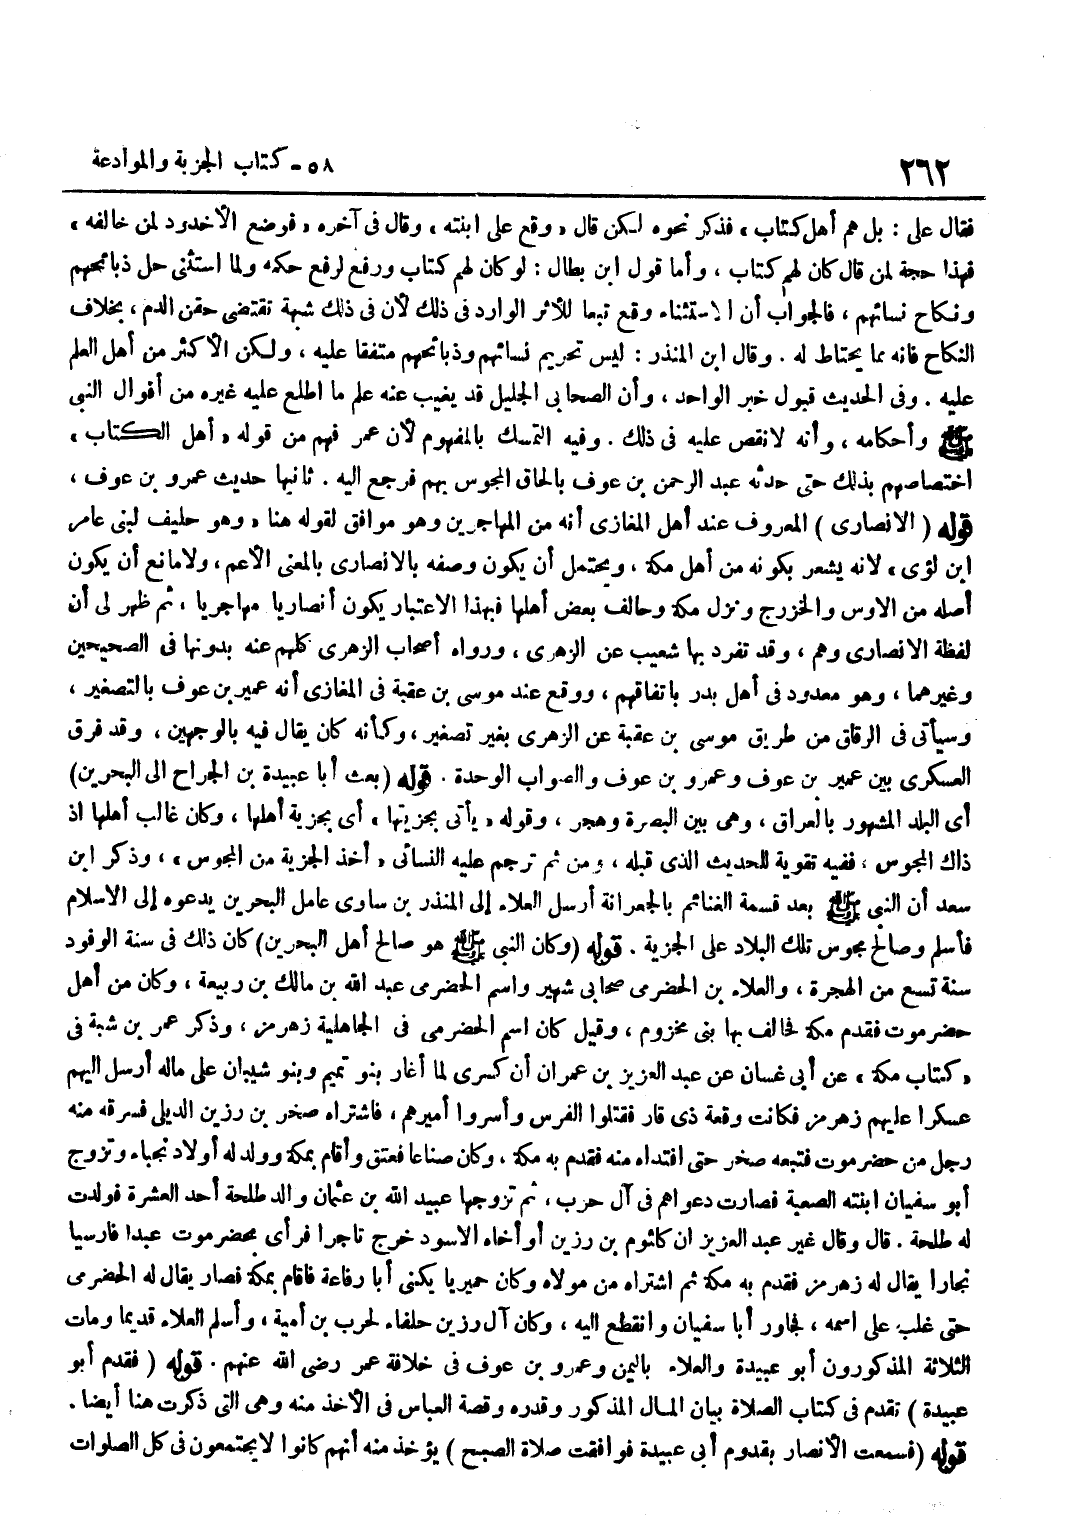 ٢٦٢
٥٨ - كتاب الجزية والموادعة
فقال على : بل هم أهل كتاب ، فذكر نحوه لكن قال « وقع على ابنته ، وقال فى آخره « فوضع الأخدود لمن خالفه ،
فهذا حجة لمن قال كان لهم كتاب ، وأما قول ابن بطال : لو كان لهم كتاب ورفع لرفع حكمه ولما استثنى حل ذبائحهم
ونكاح نسائهم ، فالجواب أن الاستثناء وقع تبعا للأثر الوارد فى ذلك لأن فى ذلك شبهة تقتضى حقن الدم ، بخلاف
النكاح فانه مما يحتاط له . وقال ابن المنذر : ليس تحريم نسائهم وذبائحهم متفقا عليه ، ولكن الأكثر من أهل العلم
عليه . وفى الحديث قبول خبر الواحد ، وأن الصحابى الجليل قد يغيب عنه علم ما اطلع عليه غيره من أقوال النبى
ﷺ وأحكامه ، وأنه لا نقص عليه فى ذلك . وفيه التمسك بالمفهوم لأن عمر فهم من قوله « أهل الكتاب ،
اختصاصهم بذلك حتى حدثه عبد الرحمن بن عوف بالحاق المجوس بهم فرجع اليه . ثانيها حديث عمرو بن عوف ،
قوله ( الانصارى ) المعروف عند أهل المغازى أنه من المهاجرين وهو موافق لقوله هنا « وهو حليف لبنى عامر
ابن لؤى ، لانه يشعر بكونه من أهل مكة ، ويحتمل أن يكون وصفه بالانصارى بالمعنى الأعم ، ولا مانع أن يكون
أصله من الاوس والخزرج ونزل مكة وحالف بعض أهلها فبهذا الاعتبار يكون أنصاريا مهاجريا ، ثم ظهر لى أن
لفظة الانصارى وهم ، وقد تفرد بها شعيب عن الزهرى ، ورواه أصحاب الزهرى كلهم عنه بدونها فى الصحيحين
وغيرهما ، وهو معدود فى أهل بدر باتفاقهم ، ووقع عند موسى بن عقبة فى المغازى أنه عمير بن عوف بالتصغير ،
وسيأتى فى الرقاق من طريق موسى بن عقبة عن الزهرى بغير تصغير ، وكأنه كان يقال فيه بالوجهين ، وقد فرق
العسكرى بين عمير بن عوف وعمرو بن عوف والصواب الوحدة . قوله ( بعث أبا عبيدة بن الجراح الى البحرين )
أى البلد المشهور بالعراق ، وهى بين البصرة وهجر ، وقوله « يأتى بجزيتها ، أى بجزية أهلها ، وكان غالب أهلها اذ
ذاك المجوس ، ففيه تقوية للحديث الذى قبله ، ومن ثم ترجم عليه النسائى « أخذ الجزية من المجوس » ، وذكر ابن
سعد أن النبى ﷺ بعد قسمة الغنائم بالجعرانة أرسل العلاء إلى المنذر بن ساوى عامل البحرين يدعوه إلى الاسلام
فأسلم وصالح مجوس تلك البلاد على الجزية . قوله ( وكان النبى ﷺ هو صالح أهل البحرين ) كان ذلك فى سنة الوفود
سنة تسع من الهجرة ، والعلاء بن الحضرمى صحابى شهير واسم الحضرمى عبد الله بن مالك بن ربيعة ، وكان من أهل
حضرموت فقدم مكة فحالف بها بنى مخزوم ، وقيل كان اسم الحضرمى فى الجاهلية زهرمز ، وذكر عمر بن شبة فى
« كتاب مكة ، عن أبى غسان عن عبد العزيز بن عمران أن كسرى لما أغار بنو تميم وبنو شيبان على ماله أرسل اليهم
عسكرا عليهم زهرمز فكانت وقعة ذى قار فقتلوا الفرس وأسروا أميرهم ، فاشتراه صخر بن رزين الديلى فسرقه منه
رجل من حضرموت فتبعه صخر حتى افتداه منه فقدم به مكة ، وكان صناعا فعتق وأقام بمكة وولد له أولاد نجباء وتزوج
أبو سفيان ابنته الصعبة فصارت دعواهم فى آل حرب ، ثم تزوجها عبيد الله بن عثمان والد طلحة أحد العشرة فولدت
له طلحة . قال وقال غير عبد العزيز ان كلثوم بن رزين أو أخاه الاسود خرج تاجرا فرأى بحضرموت عبدا فارسيا
نجارا يقال له زهرمز فقدم به مكة ثم اشتراه من مولاه وكان حميريا يكنى أبا رفاعة فاقام بمكة فصار يقال له الحضرمى
حتى غلب على اسمه ، فجاور أبا سفيان وانقطع اليه ، وكان آل رزين حلفاء لحرب بن أمية ، وأسلم العلاء قديما ومات
الثلاثة المذكورون أبو عبيدة والعلاء باليمن وعمرو بن عوف فى خلافة عمر رضى الله عنهم . قوله ( فقدم أبو
عبيدة ) تقدم فى كتاب الصلاة بيان المال المذكور وقدره وقصة العباس فى الأخذ منه وهى التى ذكرت هنا أيضا .
قوله ( فسمعت الأنصار بقدوم أبى عبيدة فوافقت صلاة الصبح ) يؤخذ منه أنهم كانوا لا يجتمعون فى كل الصلوات